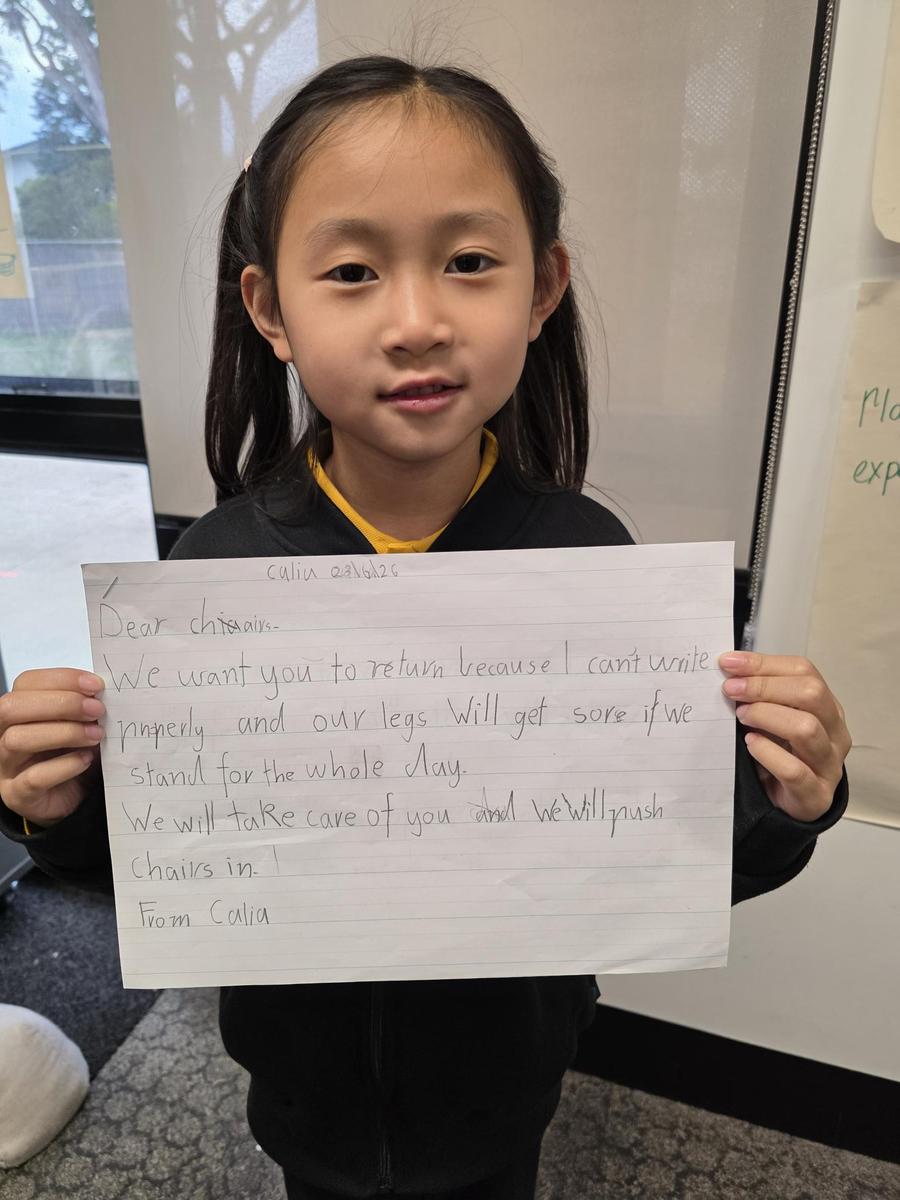 Calia 23/6/26
Dear chairs.
We want you to return because I can't write
properly and our legs Will get sore if we
stand for the whole day.
We will take care of you and We Will push
Chairs in.
From Calia